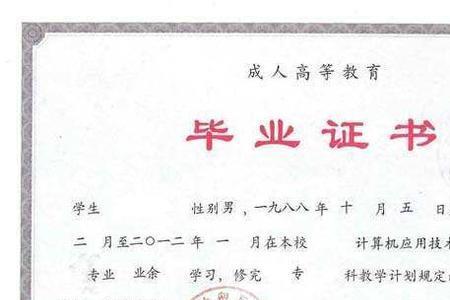 成人高等教育
毕业证书
学生 性别男，一九八八年 十 月 五 日
二 月至二〇一二年 一 月在本校 计算机应用技
专业 业余 学习，修完 专 科教学计划规定